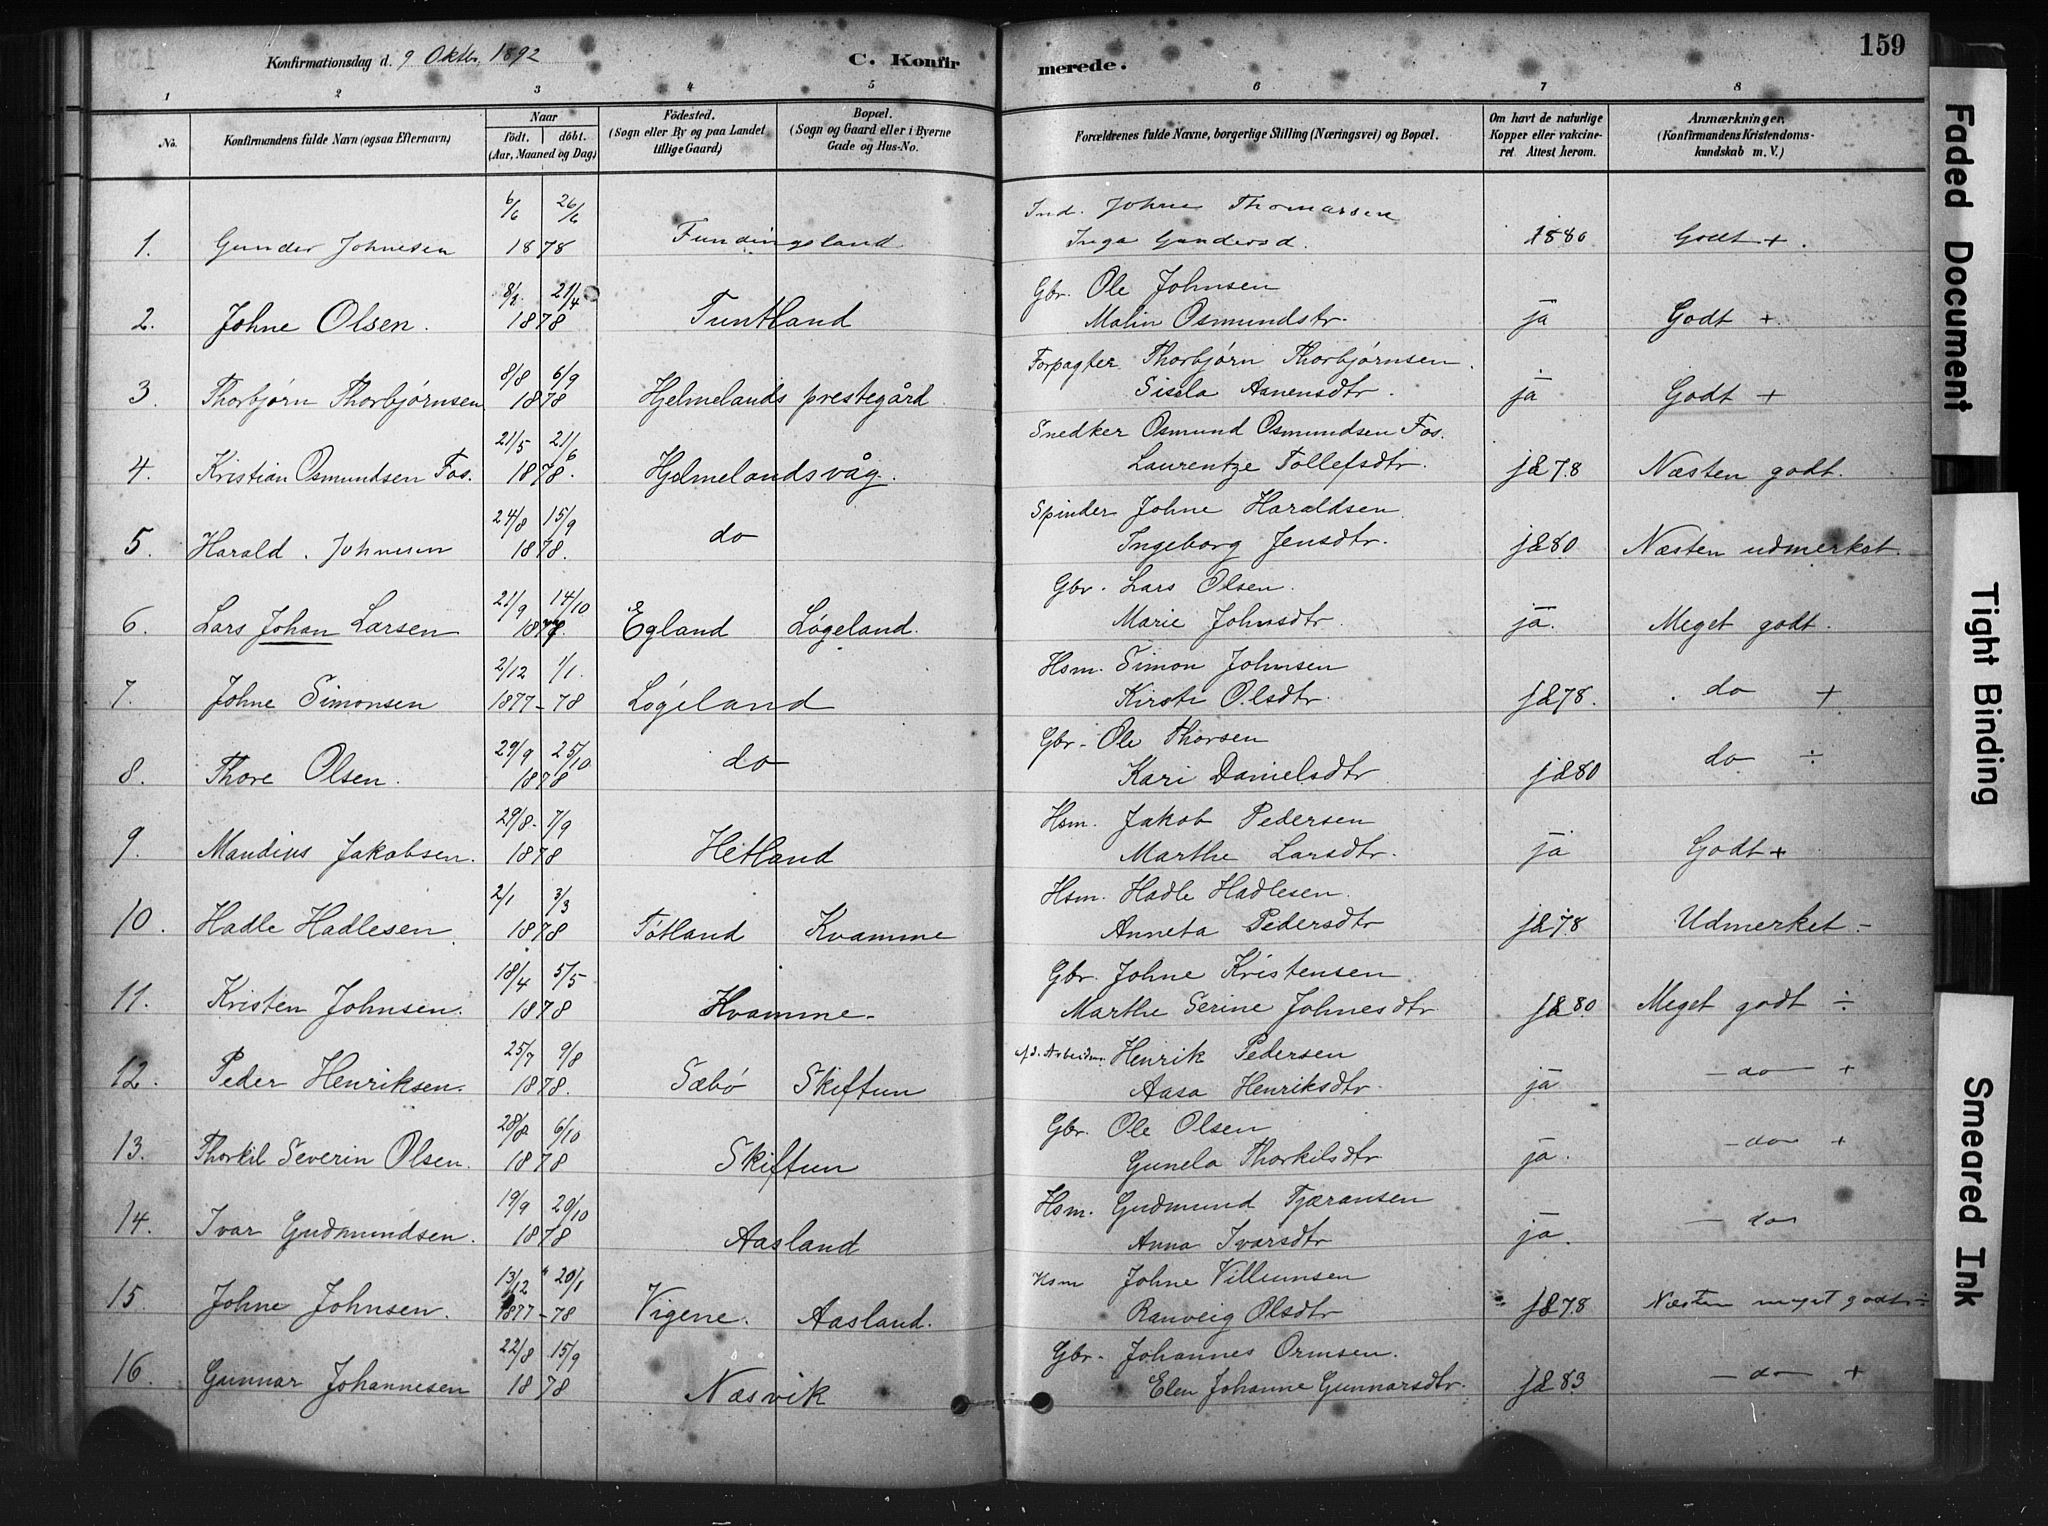 Konfirmationsdag d. 9 Oktbr. 1892 C. Konfirmerede. 159
1 2 3 4 5 6 7 8
No. Konfirmandens fulde Navn (ogsaa Efternavn) Naar födt. döbt. (Aar, Maaned og Dag) Födested. (Sogn eller By og paa Landet tillige Gaard) Bopæl. (Sogn og Gaard eller i Byerne Gade og Hus-No. Forældrenes fulde Navne, borgerlige Stilling (Næringsvei) og Bopæl. Om havt de naturlige Kopper eller vakcineret Attest herom. Anmærkninger. (Konfirmandens Kristendomskundskab m. V.)
6/6 26/6 Ind. Johne Thomassen
1. Gunder Johnesen 1878 Fundingsland Inga Gundersd. 1880 Godt +.
21/4 Gbr. Ole Johnsen
2. Johne Olsen. 1878 Tuntland Malin Osmundstr. ja Godt +
8/8 6/9 Forpagter Thorbjørn Thorbjørnsen.
3. Thorbjørn Thorbjørnsen 1878 Hjelmelands prestegård. Sissela Aanensdtr. ja Godt +
21/5 21/6 Snedker Osmund Osmundsen Fos.
4. Kristian Osmundsen Fos. 1878. Hjelmelandsvåg. Laurentze Tollefsdtr. 78 Næsten godt.
24/8 15/9 Spinder Johne Haraldsen.
5. Harald Johnesen 1878. do Ingeborg Jensdtr. 80 Næsten udmerket.
21/9 14/10 Gbr. Lars Olsen.
6. Lars Johan Larsen Egland Løgeland. Marie Johnsdtr. ja. Meget godt.
2/12 1/1. Hsm. Simon Johnsen
7. Johne Simonsen 1877-78 Løgeland Kirsti Olsdtr. 78. do +
29/9 25/10 Gbr. Ole Thorsen
8. Thore Olsen. 1878 do Kari Danielsdtr. 80 do ÷
29/8 1/9 Hsm. Jakob Pedersen
9. Mandius Jakobsen. 1878 Hetland Marthe Larsdtr. ja Godt +
2/1 3/3 Hsm. Hadle Hadlesen.
10. Hadle Hadlesen. 1878 Tøtland Kvamme Anneta Pedersdtr 78 Udmerket -
18/4 5/5 Gbr. Johne Kristensen
11. Kristen Johnsen. 1878 Kvamme. Marthe Serine Johnesdtr 80. Meget godt ÷
25/7 9/8 Henrik Pedersen
12. Peder Henriksen. 1878. Sæbø Skiftun Aasa Henriksdtr. ja - do - +
28/8 6/10 Gbr. Ole Olsen
13. Thorkil Severin Olsen. 1878 Skiftun Gunela Thorkilsdtr ja. - do - +
19/9 20/10 Hsm. Gudmund Tjæransen
14. Ivar Gudmundsen. 1878 Aasland Anna Ivarsdtr ja. - do
13/12 20/1 Hsm Johne Villumsen
15. Johne Johnsen. 1877-78 Vigene. Aasland. Ranveig Olsdtr 78 Næsten meget godt ÷
22/8 15/9 Gbr. Johannes Ormsen.
16. Gunnar Johannesen 1878 Næsvik Elen Johanne Gunnarsdtr. 83 - do - +
Faded Document
Tight Binding
Smeared Ink